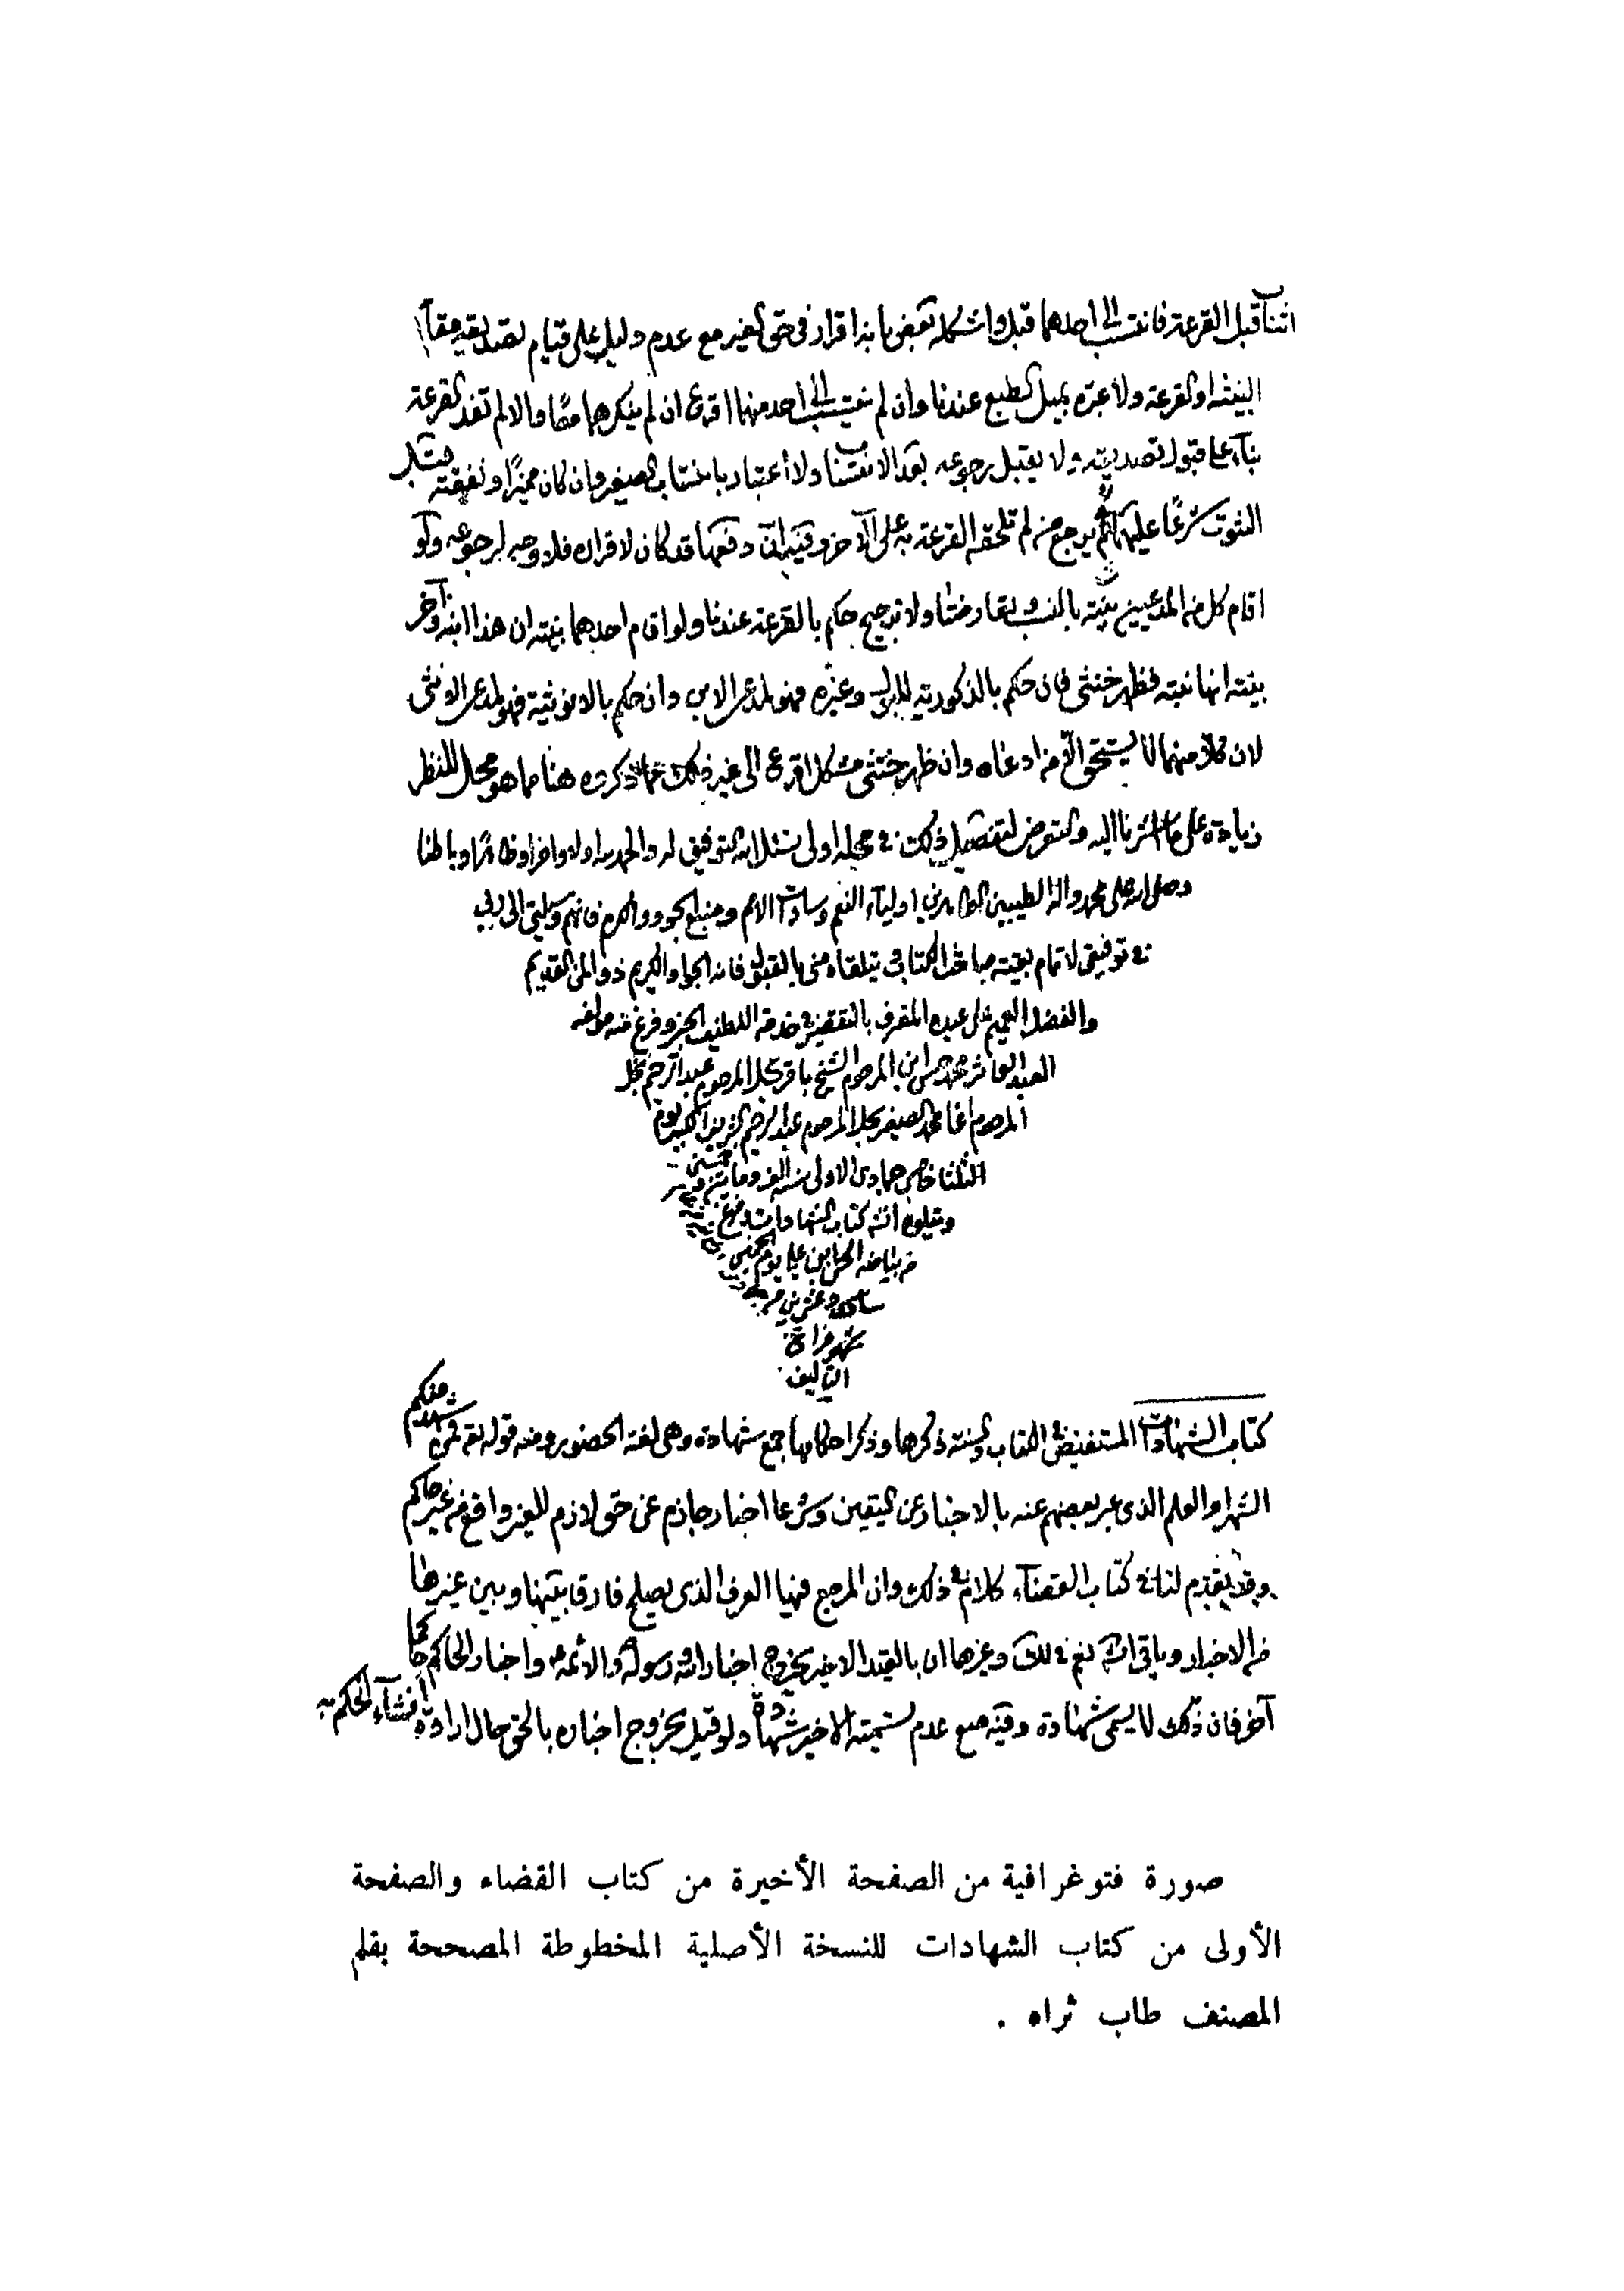 قبل القرعة فانتسب الى احدهما قبل واشكله بعض بانه اقرار في حق الغير مع عدم دليل على قيام تصديقه مقام
البينة او القرعة ولا عبرة بميل الطبع عندنا وان لم ينتسب الى احد منهما اقرع ان لم ينكرهما معا والا لم تفد القرعة
بناء على قبول تصديقه ولا يقبل رجوعه بعد الانتساب ولا اعتبار بانتساب الصغير وان كان مميزا ونفقته قبل
الثبوت شرعا عليهما ثم يرجع من لم تلحقه القرعة به على الآخر وفيه ان دفعها قد كان لاقراره فلا وجه لرجوعه ولو
اقام كل من المدعيين بينة بالنسب وتعارضتا ولا ترجيح حكم بالقرعة عندنا ولو اقام احدهما بينة ان هذا ابنه وآخر
بينة انها بنته فظهر خنثى فان حكم بالذكورية للبول وغيره فهو لمدعي الابن وان حكم بالانوثية فهو لمدعي الانثى
لان كلا منهما لا يستحق الا من ادعاه وان ظهر خنثى مشكل اقرع الى غير ذلك مما ذكروه هنا مما هو محل للنظر
زيادة على ما اشرنا اليه والتعرض لتفصيل ذلك في محله اولى نسئل الله التوفيق له والحمد لله اولا وآخرا وظاهرا وباطنا
وصلى الله على محمد وآله الطيبين الطاهرين اولياء النعم وسادات الامم ومنبع الجود والكرم فانهم وسيلتي الى ربي
في توفيقي لاتمام بقية مباحث الكتاب و يتلقاه مني بالقبول فانه الجواد الكريم ذو المن القديم
والفضل العميم على عبده المقرف بالتقصير في خدمة اللطيف الخبير وفرغ منه مؤلفه
العبد العاثر محمد حسن ابن المرحوم الشيخ باقر نجل المرحوم عبد الرحيم نجل
المرحوم اغا محمد الصغير نجل المرحوم عبد الرحيم الشريف الكبير يوم
الثلثا خامس جمادى الاولى سنة الف ومائتين
ويتلوه انشاء الله كتاب الشهادات وفرغ
من بياضه
شهر فراغ
التأليف
كتاب الشهادات المستفيض في الكتاب والسنة ذكرها وذكر احكامها جمع شهادة وهي لغة الحضور ومنه قوله تعالى فمن شهد منكم
الشهر او العلم الذي عبر بعضهم عنه بالاخبار عن اليقين وشرعا اخبار جازم عن حق لازم للغير واقع من غير حاكم
وقد تقدم لنا في كتاب القضاء كلام في ذلك وان المرجع فيها العرف الذي يصلح فارقا بينها وبين غيرها
من الاخبار وباقي نعم في لك وغيرها ان بالقيد الاخير يخرج اخبار الله ورسوله والائمة واخبار الحاكم حاكما
آخر فان ذلك لا يسمى شهادة وفيه منع عدم تسمية الاخير شهادة ولو قيل بخروج اخباره بالحق حال ارادة انشاء الحكم به
صورة فتوغرافية من الصفحة الأخيرة من كتاب القضاء والصفحة
الأولى من كتاب الشهادات للنسخة الأصلية المخطوطة المصححة بقلم
المصنف طاب ثراه .